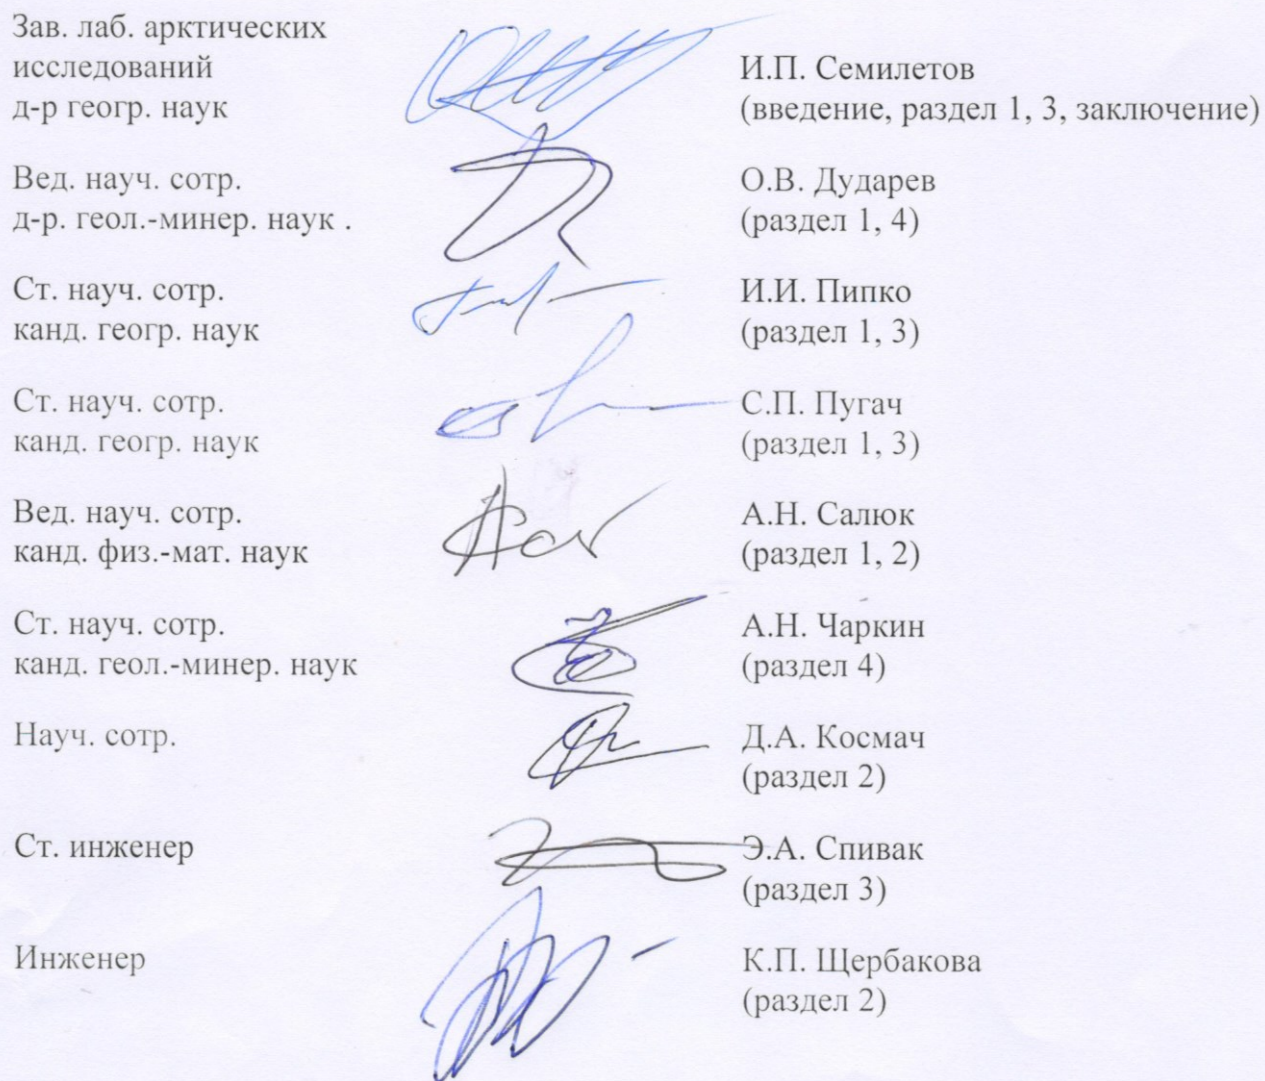 Зав. лаб. арктических
исследований
д-р геогр. наук
И.П. Семилетов
(введение, раздел 1, 3, заключение)
Вед. науч. сотр.
д-р. геол.-минер. наук .
О.В. Дударев
(раздел 1, 4)
Ст. науч. сотр.
канд. геогр. наук
И.И. Пипко
(раздел 1, 3)
Ст. науч. сотр.
канд. геогр. наук
С.П. Пугач
(раздел 1, 3)
Вед. науч. сотр.
канд. физ.-мат. наук
А.Н. Салюк
(раздел 1, 2)
Ст. науч. сотр.
канд. геол.-минер. наук
А.Н. Чаркин
(раздел 4)
Науч. сотр.
Д.А. Космач
(раздел 2)
Ст. инженер
Э.А. Спивак
(раздел 3)
Инженер
К.П. Щербакова
(раздел 2)